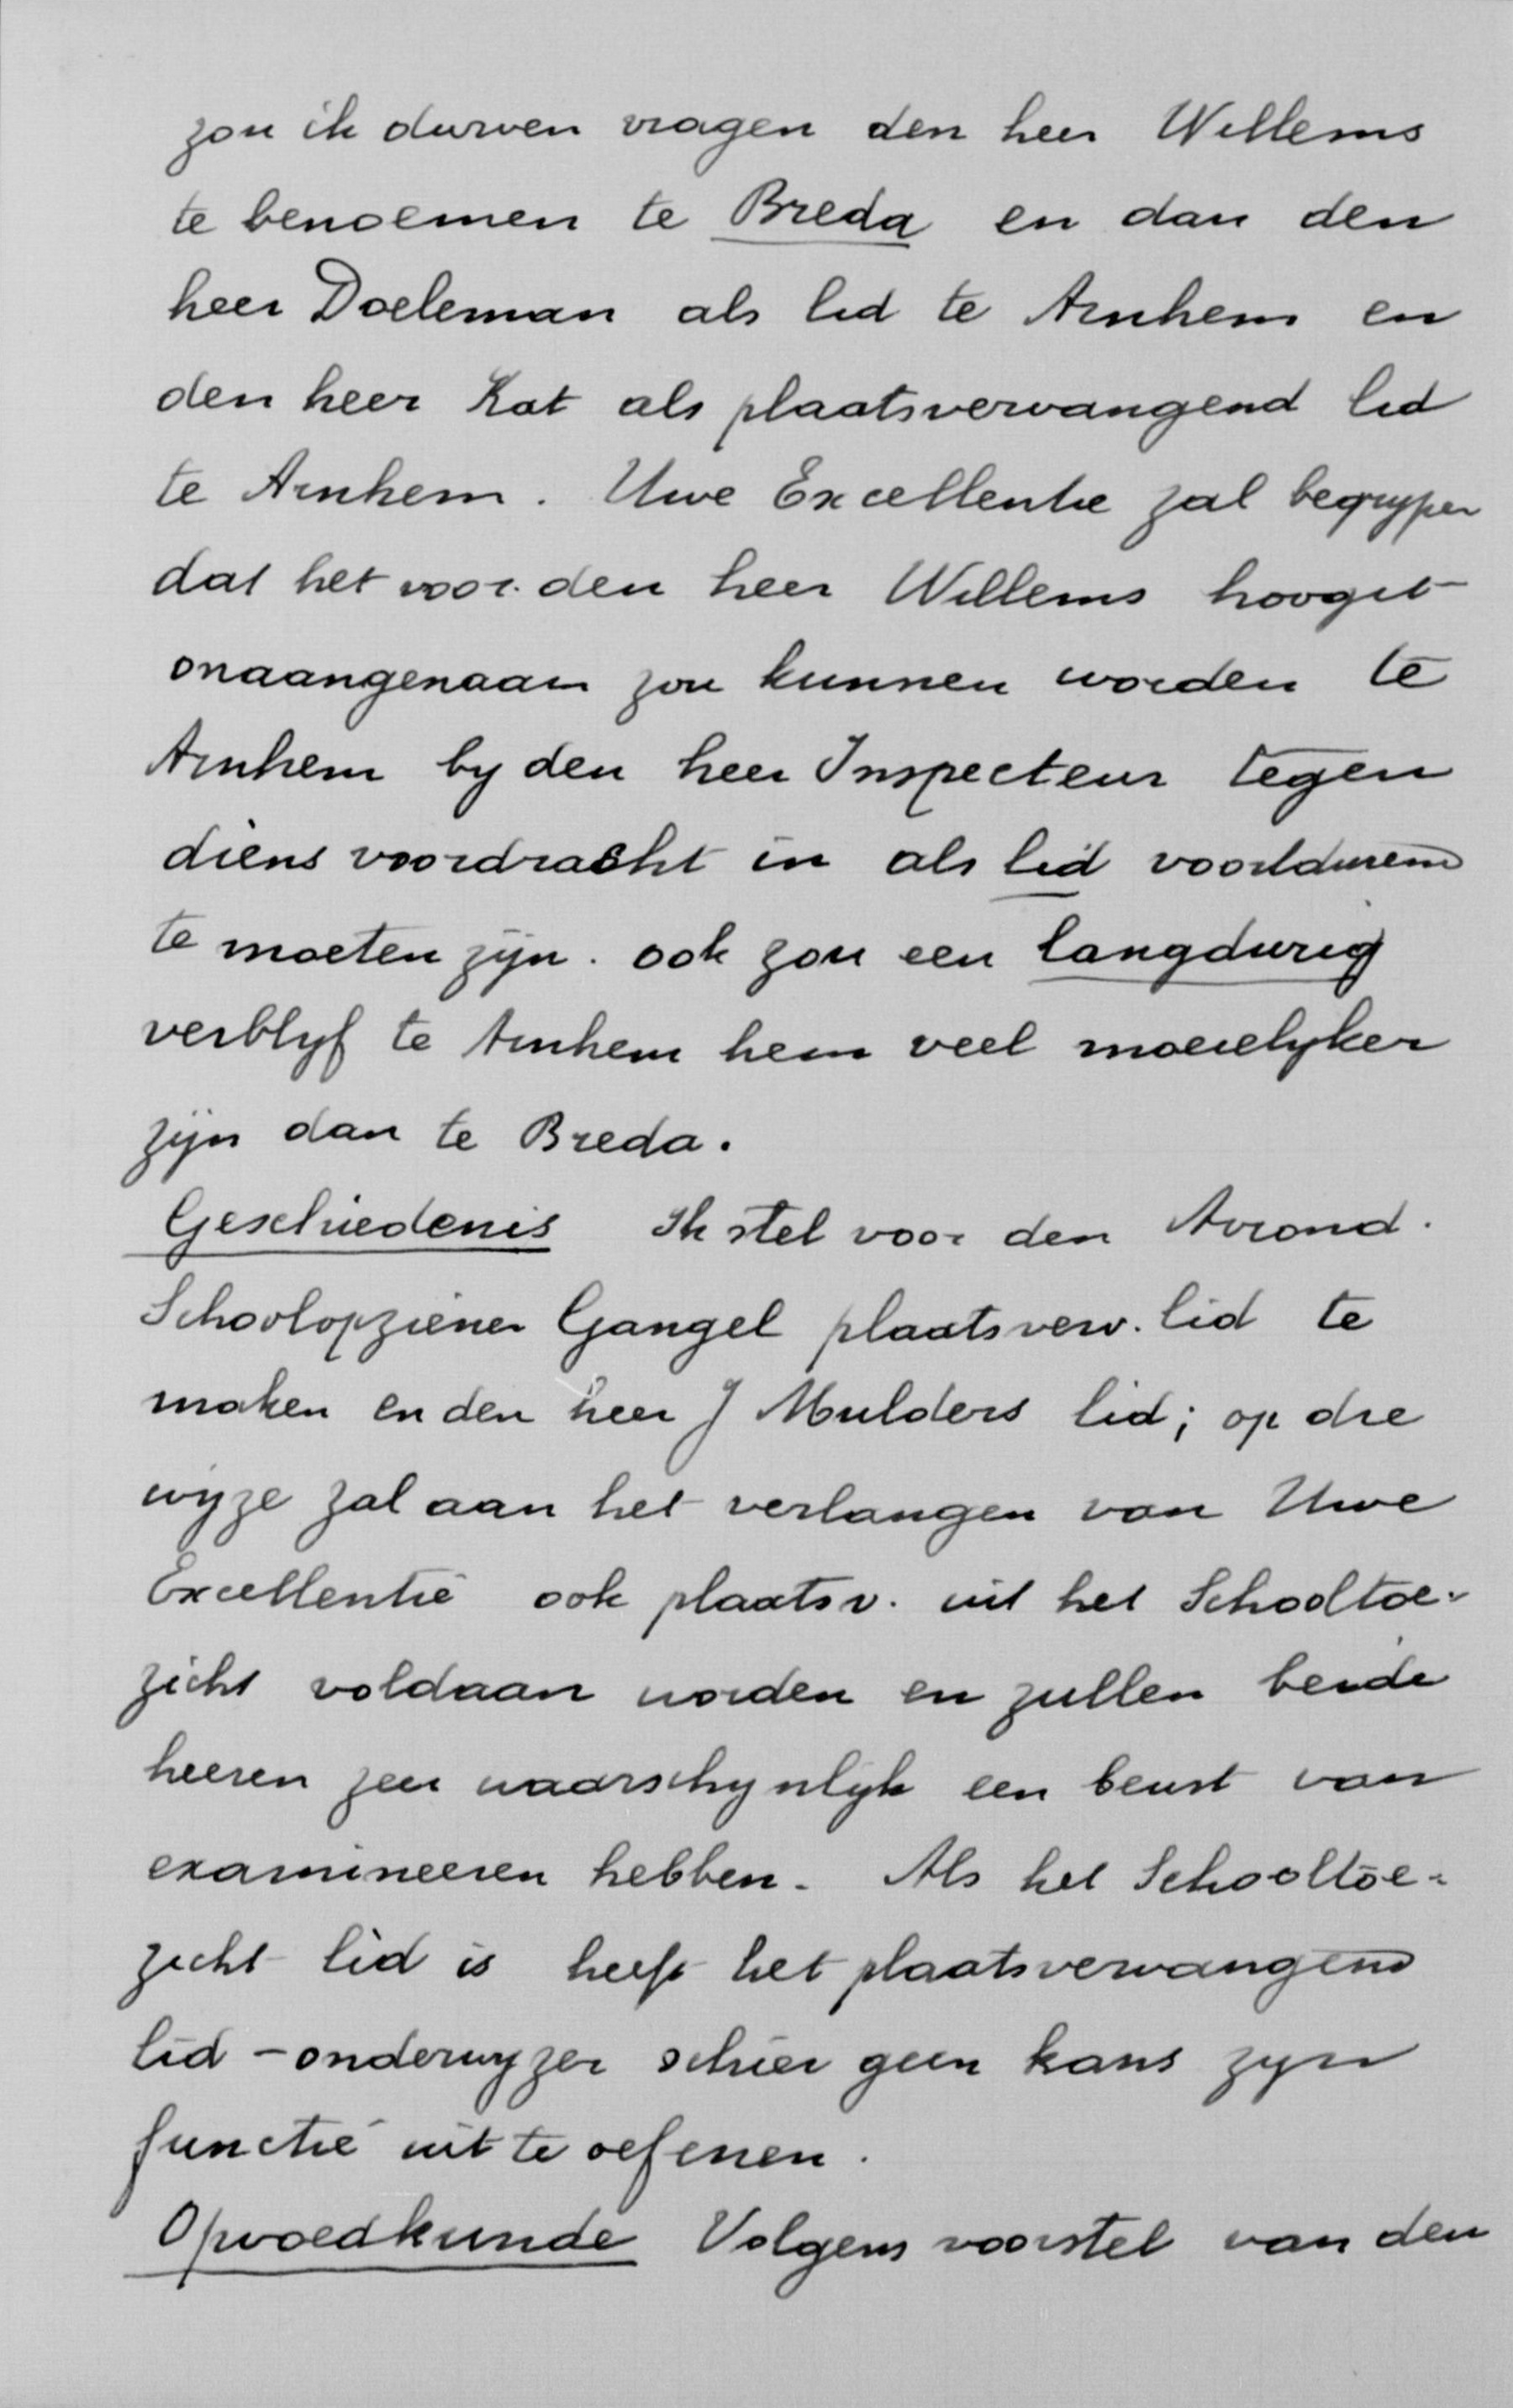 zou ik durven vragen den heer Willems
te benoemen te Breda en dan den
heer Doeleman als lid te Arnhem en
den heer Kat als plaatsvervangend lid
te Arnhem. Uwe Excellentie zal begrypen
dat het voor den heer Willems hoogst
onaangenaam zou kunnen worden te
Arnhem by den heer Inspecteur tegen
diens voordracht in als lid voortdurend
te moeten zijn. ook zou een langdurig
verblyf te Arnhem hem veel moeielyker
zijn dan te Breda.
Geschiedenis Ik stel voor den Arrond.
Schoolopziener Gangel plaatsverv. lid te
maken en den heer J Mulders lid; op die
wyze zal aan het verlangen van Uwe
Excellentie ook plaatsv. uit het Schooltoe-
zicht voldaan worden en zullen beide
heeren zeer waarschynlyk een beurt van
examineeren hebben. Als het Schooltoe-
zicht lid is heeft het plaatsvervangend
lid - onderwyzer schier geen kans zyn
functie uit te oefenen.
Opvoedkunde Volgens voorstel van den